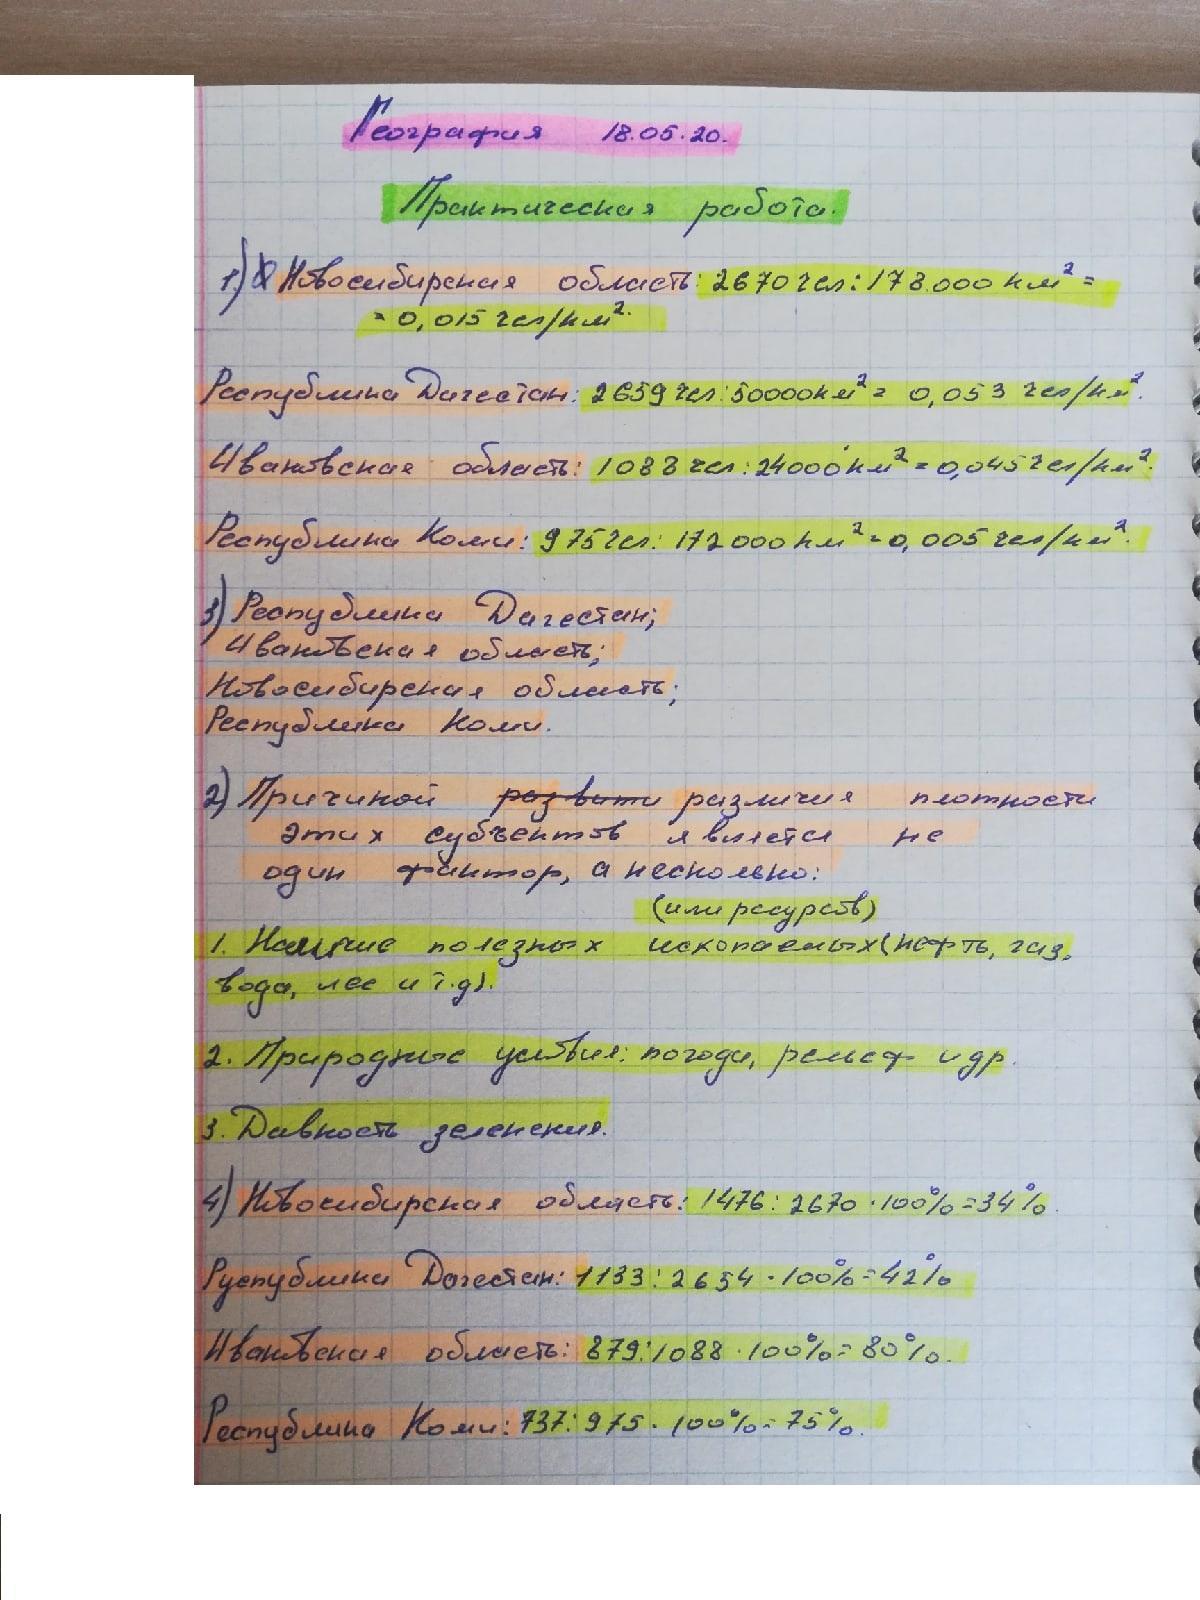 География 18.05.20.
Практическая работа.
1.) Новосибирская область: 2670 чел: 178.000 км² =
= 0,015 чел/км².
Республика Дагестан: 2659 чел: 50000 км² = 0,053 чел/км².
Ивановская область: 1088 чел: 24000 км² = 0,045 чел/км².
Республика Коми: 975 чел: 172000 км² = 0,005 чел/км².
3) Республика Дагестан;
Ивановская область;
Новосибирская область;
Республика Коми.
2) Причиной развити различия плотности
этих субъектов является не
один фактор, а несколько:
(или ресурсов)
1. Наличие полезных ископаемых (нефть, газ,
вода, лес и т.д).
2. Природные условия: погода, рельеф и др.
3. Давность зеленения.
4) Новосибирская область: 1476: 2670 · 100% = 34%
Руспублика Дагестан: 1133: 2654 · 100% = 42%
Ивановская область: 879: 1088 · 100% = 80%.
Республика Коми: 737: 975 · 100% = 75%.